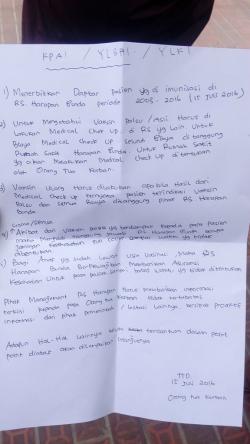 KPAI / YLBHI / YLKI
1) Menerbitkan Daftar pasien yg di imunisasi di
RS. Harapan Bunda periode 2003 - 2016 (15 JULI 2016)
2) Untuk Mengetahui Vaksin Palsu / Asli Harus di
Lakukan Medical Check up, di RS yg lain Untuk
Biaya Medical Check up seluruh Biaya di tanggung
Rumah Sakit Harapan Bunda. Untuk Rumah Sakit
yg akan Melakukan Medical Check up ditentukan
oleh Orang Tua Korban.
3) Vaksin Ulang Harus dilakukan apabila Hasil dari
Medical Check up ternyata pasien terindikasi Vaksin
Palsu dan semua Biaya ditanggung pihak RS Harapan
Bunda.
4) Akibat dari Vaksin palsu yg berdampak kepada para pasien
maka Menjadi RS Harapan Bunda
Jaminan Kesehatan full Cover sampai waktu yg tidak
ditentukan
5) Anak yg sudah Lewat usia Vaksinasi, Maka RS
Harapan Bunda Asuransi
Kesehatan Untuk batas waktu yg tidak ditentukan
Pihak Management RS Harapan Harus memberikan informasi
terkini kepada para Orang tua Korban
informasi dari pihak pemerintah / instansi lainnya
Adapun Hal-Hal lainnya belum tercantum dalam point
point diatas akan
TTD
15 JULI 2016
Orang tua Korban